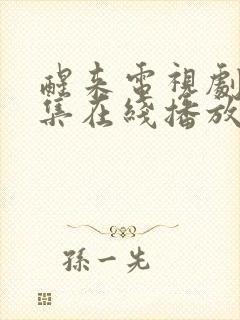 醒来電視劇
集在綫播放
孫一先